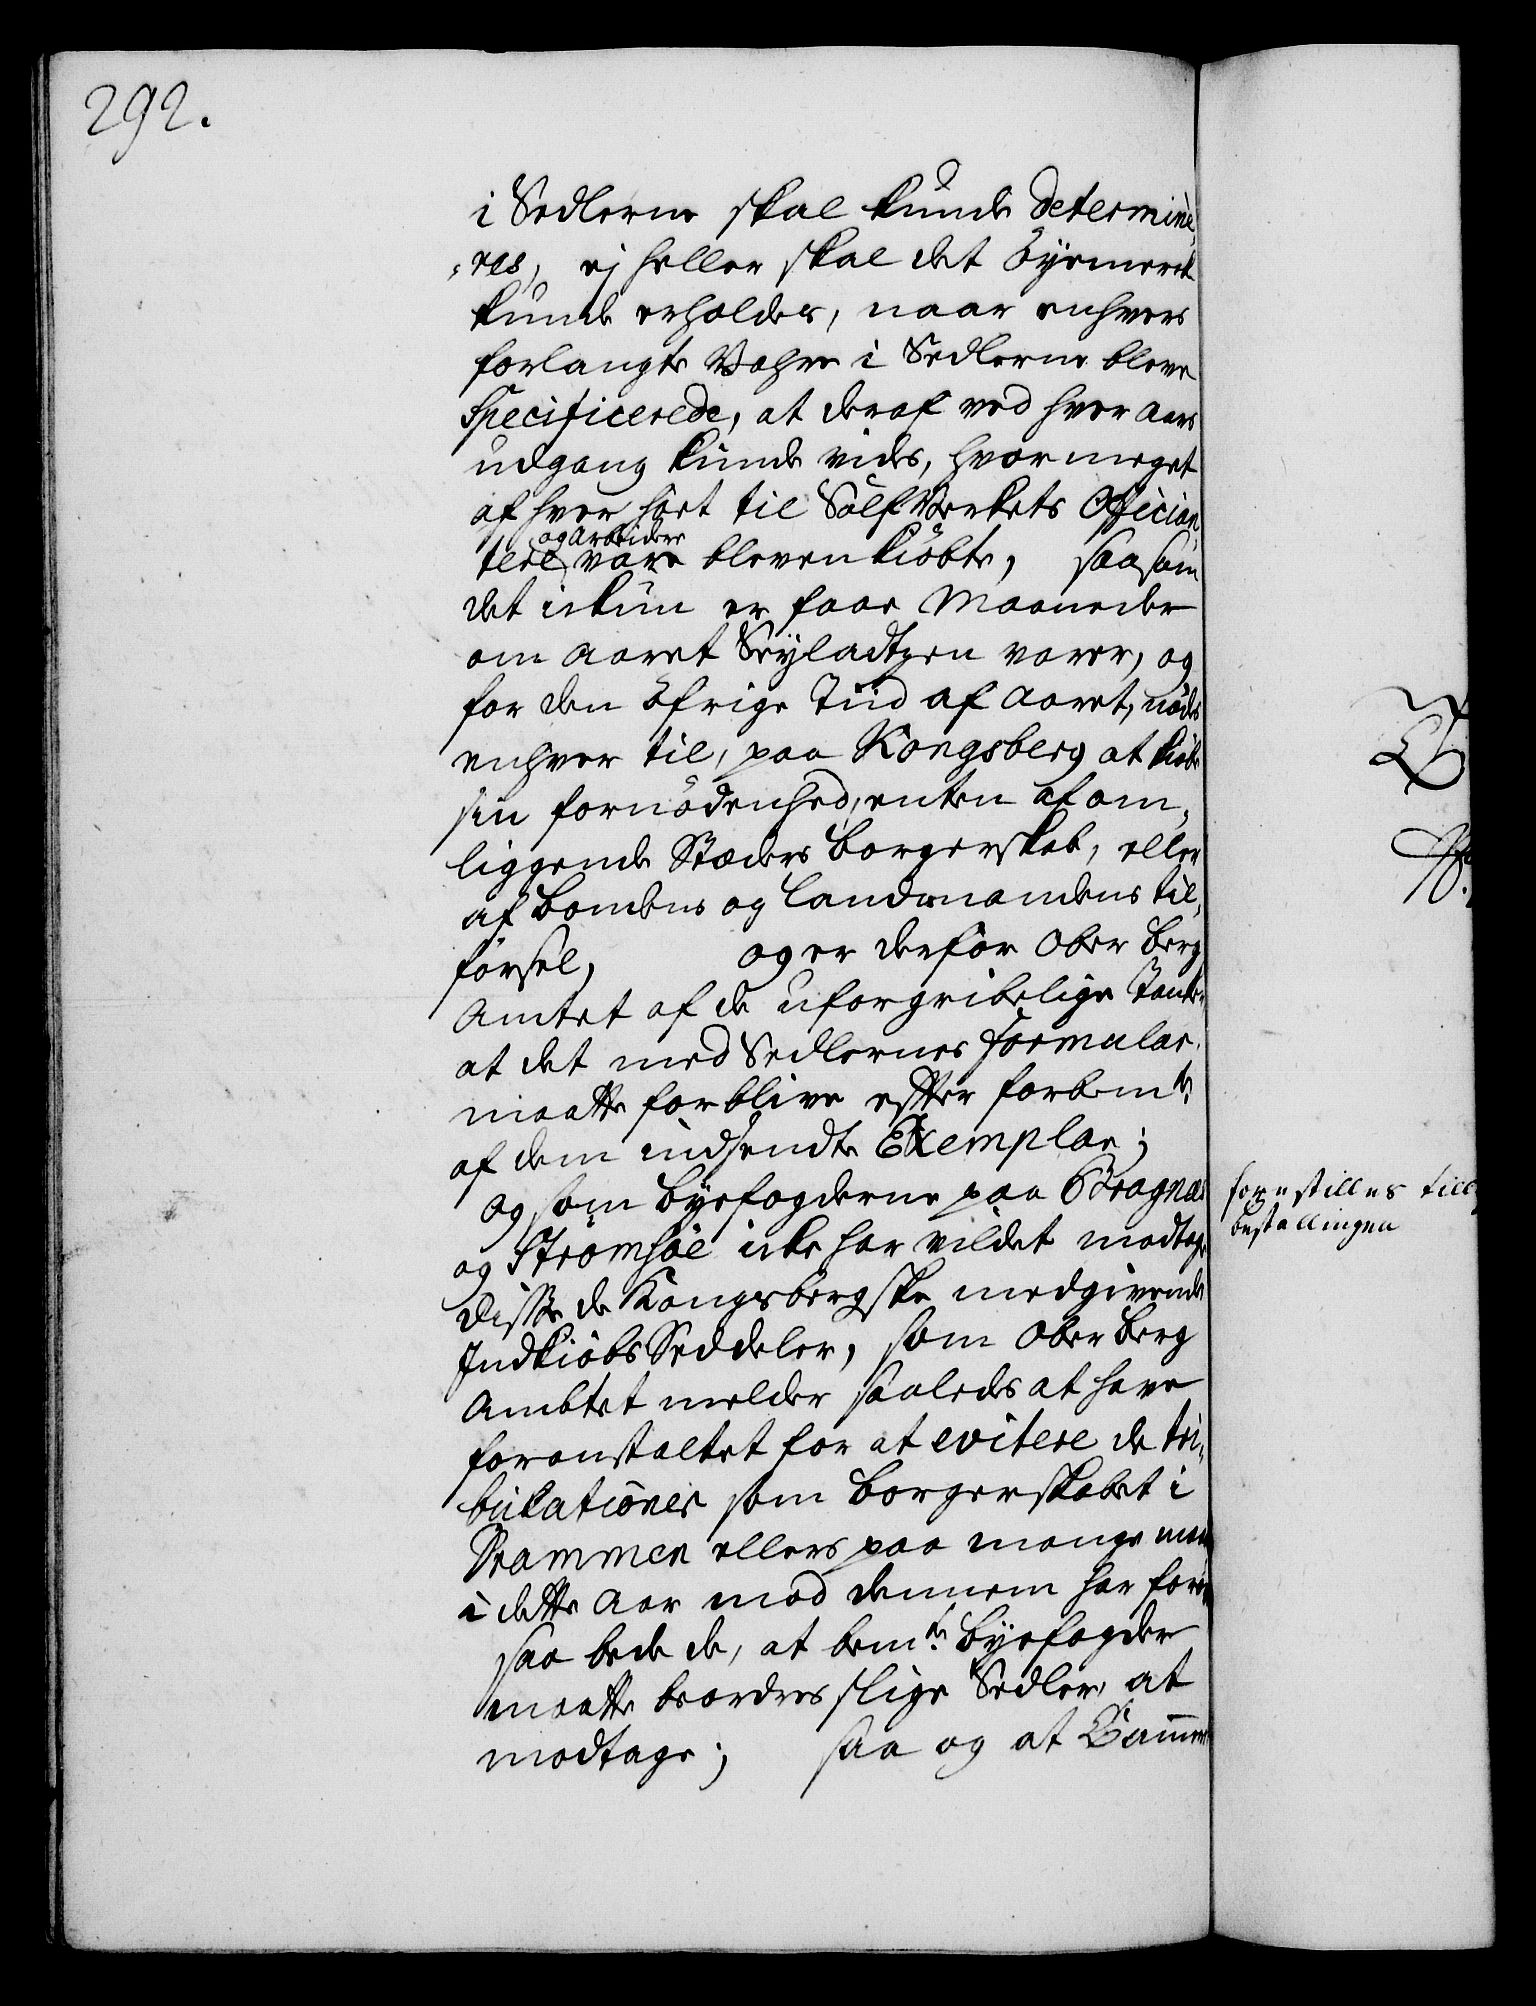 292.
i Sedlerne skal kunde determine,
,res, ej heller skal det Øyemerck
kunde erholdes, naar enhvers
forlangte Vahre i Sedlerne bleve
specificerede, at deraf ved hver Aars
udgang kunde vides, hvor meget
af hver sort til Sølfverkets Offician,
og Arbeidere
tere vare bleven kiøbte, saasom
det ickun er faae Maaneder
om Aaret Seyladtzen varer, og
for den øfrige Tiid af Aaret, nødes
enhver til, paa Kongsberg at kiøbe
sin fornødenhed, enten af om,
liggende Stæders Borgerskab, eller
af Bondens og Landmandens til,
førsel, og er derfor Ober Berg
Amtet af de uforgribelige Tanker
at det med Sedlernes Formular
maatte forblive efter forbemte
af dem indsendte Exemplar;
og som Byefogderne paa Bragnæs
og Strømsøe icke har vildet modtage
disse de Kongsbergske medgivende
Indkiøbs Seddeler, som Ober Berg
Ambtet melder saaledes at have
foranstaltet for at evitere de tri,
bulationer som Borgerskabet i
Drammen ellers paa mange maader
i dette Aar mod dennem har
saa bede de, at bemte Byefogder
maatte beordres slige Sedler at
modtage; saa og at
forestilles till
bestallingen